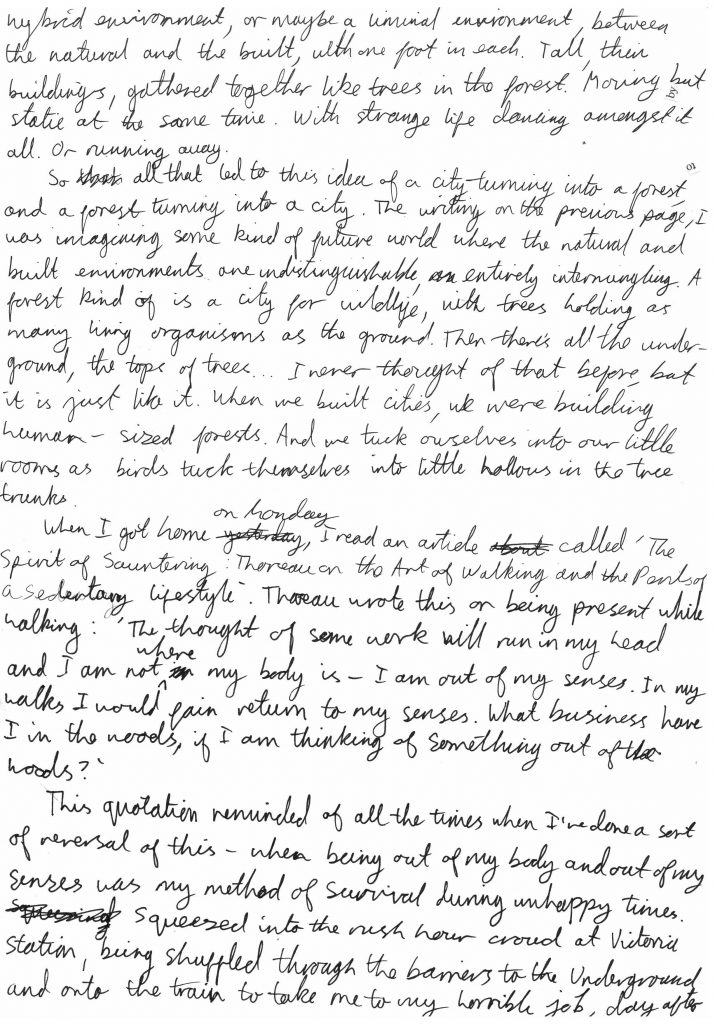 hybrid environment, or maybe a liminal environment, between
the natural and the built, with one foot in each. Tall, thin
buildings, gathered together like trees in the forest. Moving but
static at the same time. With strange life dancing amongst it
all. Or running away.
So that all that led to this idea of a city turning into a forest,
or
and a forest turning into a city. The writing on the previous page, I
was imagining some kind of future world where the natural and
built environments are indistinguishable, an entirely intermingling. A
forest kind of is a city for wildlife, with trees holding as
many living organisms as the ground. Then there's all the under-
ground, the tops of trees... I never thought of that before, but
it is just like it. When we built cities, we were building
human-sized forests. And we tuck ourselves into our little
rooms as birds tuck themselves into little hollows in the tree
trunks.
on Monday
When I got home yesterday, I read an article about called 'The
Spirit of Sauntering: Thoreau on the Art of Walking and the Perils of
a sedentary lifestyle'. Thoreau wrote this on being present while
walking: 'The thought of some work will run in my head
where
and I am not in my body is – I am out of my senses. In my
walks I would fain return to my senses. What business have
I in the woods, if I am thinking of something out of the
woods?'
This quotation reminded of all the times when I've done a sort
of reversal of this – when being out of my body and out of my
senses was my method of survival during unhappy times.
Squeezing Squeezed into the rush hour crowd at Victoria
station, being shuffled through the barriers to the Underground
and onto the train to take me to my horrible job, day after